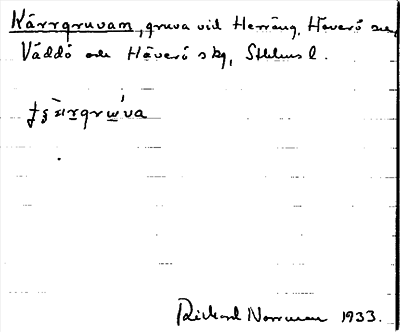 Kärrgruvam, gruva vid Herräng, Häverö sn,
Väddö och Häverö skg, Sthlms l.
Richard Norrman 1933.